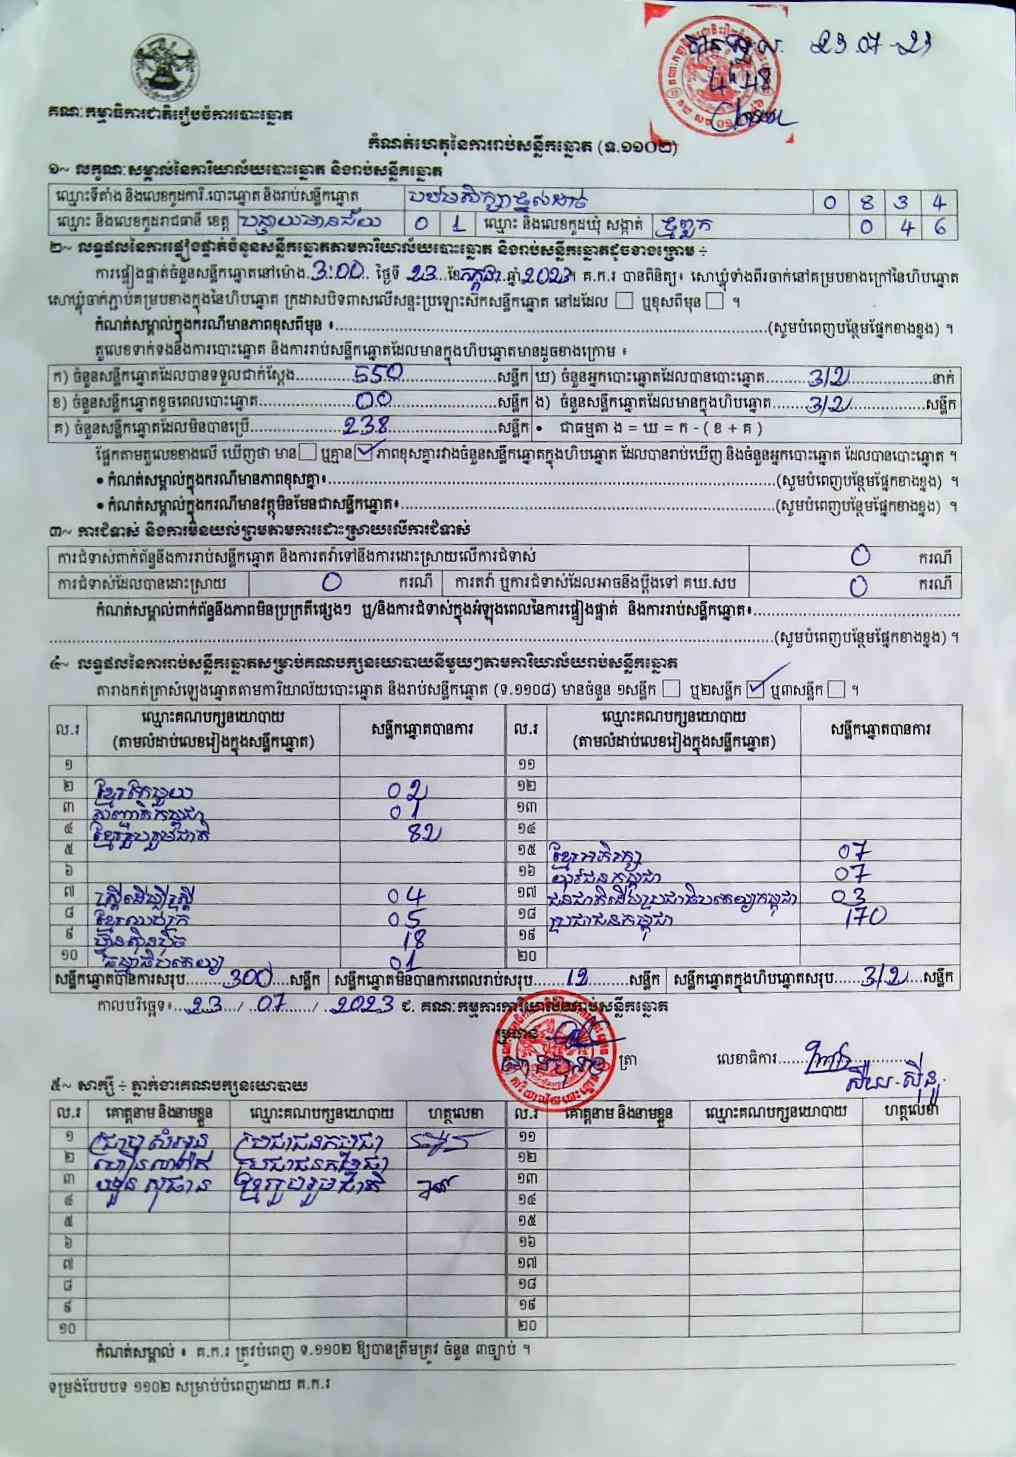 បានទទួល 23.07-23
4 48
គណៈកម្មាធិការជាតិរៀបចំការបោះឆ្នោត
កំណត់ហេតុនៃការរាប់សន្លឹកឆ្នោត (ទ.១១០២)
១~ លក្ខណៈសម្គាល់នៃការិយាល័យបោះឆ្នោត និងរាប់សន្លឹកឆ្នោត
ឈ្មោះទីតាំង និងលេខកូដការិ.បោះឆ្នោត និងរាប់សន្លឹកឆ្នោត បឋមសិក្សា 0 8 3 4
ឈ្មោះ និងលេខកូដរាជធានី ខេត្ត បន្ទាយមានជ័យ 0 1 ឈ្មោះ និងលេខកូដឃុំ សង្កាត់ 0 4 6
២~ លទ្ធផលនៃការផ្ទៀងផ្ទាត់ចំនួនសន្លឹកឆ្នោតតាមការិយាល័យបោះឆ្នោត និងរាប់សន្លឹកឆ្នោតដូចខាងក្រោម ÷
ការផ្ទៀងផ្ទាត់ចំនួនសន្លឹកឆ្នោតនៅម៉ោង 3:00 ថ្ងៃទី 23 ខែ កក្កដា ឆ្នាំ 2023 ។ គ.ក.រ បានពិនិត្យ៖ សោឃ្លុំទាំងពីរចាក់នៅគម្របខាងក្រៅនៃហិបឆ្នោត
សោឃ្លុំចាក់ភ្ជាប់គម្របខាងក្នុងនៃហិបឆ្នោត ក្រដាសបិទពាសលើសន្ទះប្រឡោះស៊កសន្លឹកឆ្នោត នៅដដែល ☐ ឬខុសពីមុន ☐ ។
កំណត់សម្គាល់ក្នុងករណីមានភាពខុសពីមុន ៖ (សូមបំពេញបន្ថែមផ្នែកខាងខ្នង) ។
តួលេខទាក់ទងនឹងការបោះឆ្នោត និងការរាប់សន្លឹកឆ្នោតដែលមានក្នុងហិបឆ្នោតមានដូចខាងក្រោម ៖
ក) ចំនួនសន្លឹកឆ្នោតដែលបានទទួលជាក់ស្តែង 550 សន្លឹក ឃ) ចំនួនអ្នកបោះឆ្នោតដែលបានបោះឆ្នោត 312 នាក់
ខ) ចំនួនសន្លឹកឆ្នោតខូចពេលបោះឆ្នោត 00 សន្លឹក ង) ចំនួនសន្លឹកឆ្នោតដែលមានក្នុងហិបឆ្នោត 312 សន្លឹក
គ) ចំនួនសន្លឹកឆ្នោតដែលមិនបានប្រើ 238 សន្លឹក • ជាធម្មតា ង = ឃ = ក - ( ខ + គ )
ផ្អែកតាមតួលេខខាងលើ ឃើញថា មាន ☐ ឬគ្មាន ☑ ភាពខុសគ្នារវាងចំនួនសន្លឹកឆ្នោតក្នុងហិបឆ្នោត ដែលបានរាប់ឃើញ និងចំនួនអ្នកបោះឆ្នោត ដែលបានបោះឆ្នោត ។
• កំណត់សម្គាល់ក្នុងករណីមានភាពខុសគ្នា៖ (សូមបំពេញបន្ថែមផ្នែកខាងខ្នង) ។
• កំណត់សម្គាល់ក្នុងករណីមានវត្ថុមិនមែនជាសន្លឹកឆ្នោត៖ (សូមបំពេញបន្ថែមផ្នែកខាងខ្នង) ។
៣~ ការជំទាស់ និងការមិនយល់ព្រមតាមការដោះស្រាយលើការជំទាស់
ការជំទាស់ពាក់ព័ន្ធនឹងការរាប់សន្លឹកឆ្នោត និងការតវ៉ាទៅនឹងការដោះស្រាយលើការជំទាស់ 0 ករណី
ការជំទាស់ដែលបានដោះស្រាយ 0 ករណី ការតវ៉ា ឬការជំទាស់ដែលអាចនឹងប្តឹងទៅ គឃ.សប 0 ករណី
កំណត់សម្គាល់ពាក់ព័ន្ធនឹងភាពមិនប្រក្រតីផ្សេងៗ ឬ/និងការជំទាស់ក្នុងអំឡុងពេលនៃការផ្ទៀងផ្ទាត់ និងការរាប់សន្លឹកឆ្នោត៖
(សូមបំពេញបន្ថែមផ្នែកខាងខ្នង) ។
៤~ លទ្ធផលនៃការរាប់សន្លឹកឆ្នោតសម្រាប់គណបក្សនយោបាយនីមួយៗតាមការិយាល័យរាប់សន្លឹកឆ្នោត
តារាងកត់ត្រាសំឡេងឆ្នោតតាមការិយាល័យបោះឆ្នោត និងរាប់សន្លឹកឆ្នោត (ទ.១១០៨) មានចំនួន ១សន្លឹក ☐ ឬ២សន្លឹក ☑ ឬ៣សន្លឹក ☐ ។
ល.រ ឈ្មោះគណបក្សនយោបាយ (តាមលំដាប់លេខរៀងក្នុងសន្លឹកឆ្នោត) សន្លឹកឆ្នោតបានការ ល.រ ឈ្មោះគណបក្សនយោបាយ (តាមលំដាប់លេខរៀងក្នុងសន្លឹកឆ្នោត) សន្លឹកឆ្នោតបានការ
១ ១១
២ ខ្មែរតែមួយ 02 ១២
៣ សញ្ជាតិកម្ពុជា 01 ១៣
៤ ខ្មែររួបរួមជាតិ 82 ១៤
៥ ១៥ ខ្មែរអភិរក្ស 07
៦ ១៦ យុវជនកម្ពុជា 07
៧ ស្ត្រីដើម្បីស្ត្រី 04 ១៧ ជនជាតិដើមប្រជាធិបតេយ្យកម្ពុជា 03
៨ ខ្មែរឈប់ក្រ 05 ១៨ ប្រជាជនកម្ពុជា 170
៩ ហ្វ៊ុនស៊ិនប៉ិច 18 ១៩
១០ ធម្មាធិបតេយ្យ 01 ២០
សន្លឹកឆ្នោតបានការសរុប 300 សន្លឹក សន្លឹកឆ្នោតមិនបានការពេលរាប់សរុប 12 សន្លឹក សន្លឹកឆ្នោតក្នុងហិបឆ្នោតសរុប 312 សន្លឹក
កាលបរិច្ឆេទ៖ 23 / 07 / 2023 ជ. គណៈកម្មការការិយាល័យរាប់សន្លឹកឆ្នោត
ប្រធាន ត្រា លេខាធិការ
៥~ សាក្សី ÷ ភ្នាក់ងារគណបក្សនយោបាយ
ល.រ គោត្តនាម និងនាមខ្លួន ឈ្មោះគណបក្សនយោបាយ ហត្ថលេខា ល.រ គោត្តនាម និងនាមខ្លួន ឈ្មោះគណបក្សនយោបាយ ហត្ថលេខា
១ ប្រជាជនកម្ពុជា ១១
២ ប្រជាជនកម្ពុជា ១២
៣ ខ្មែររួបរួមជាតិ ១៣
៤ ១៤
៥ ១៥
៦ ១៦
៧ ១៧
៨ ១៨
៩ ១៩
១០ ២០
កំណត់សម្គាល់ ៖ គ.ក.រ ត្រូវបំពេញ ទ.១១០២ ឱ្យបានត្រឹមត្រូវ ចំនួន ៣ច្បាប់ ។
ទម្រង់បែបបទ ១១០២ សម្រាប់បំពេញដោយ គ.ក.រ